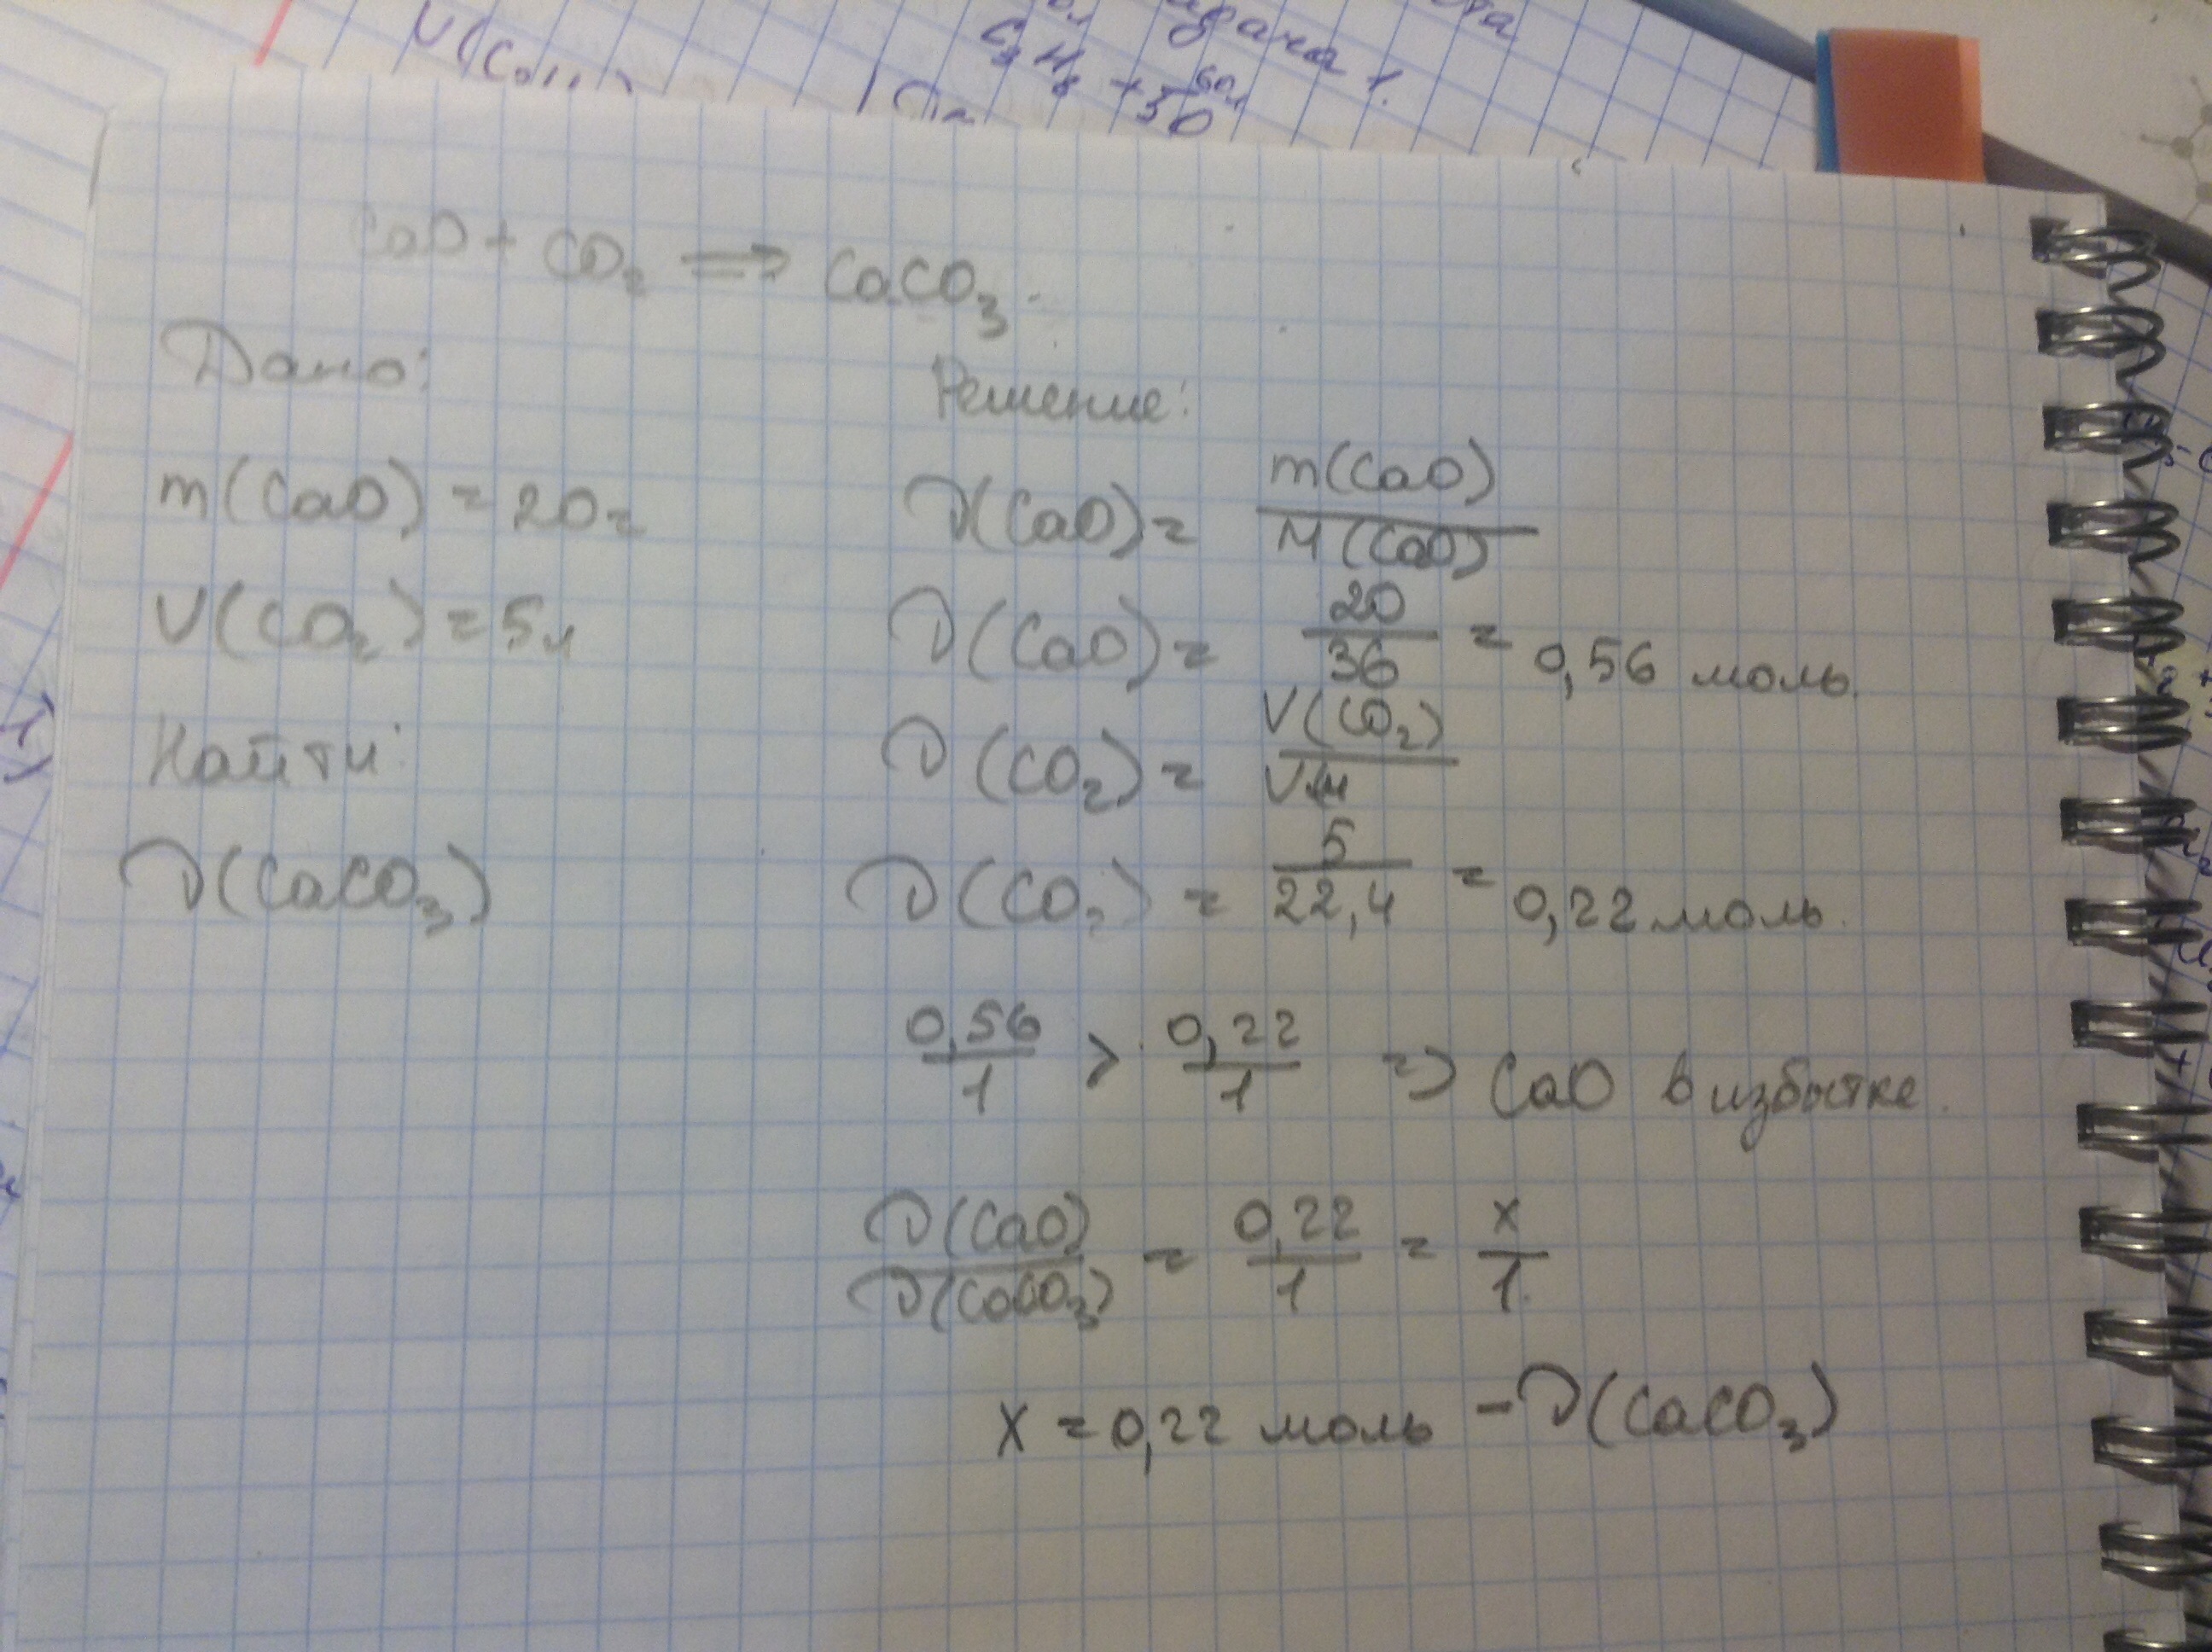 задача 1.
C₃H₈ + 5O
60л
CaO + CO₂ ⇒ CaCO₃.
Дано:
m(CaO) = 20г
V(CO₂) = 5л
Найти:
ν(CaCO₃)
Решение:
ν(CaO) = m(CaO) / M(CaO)
ν(CaO) = 20 / 36 = 0,56 моль.
ν(CO₂) = V(CO₂) / Vм
ν(CO₂) = 5 / 22,4 = 0,22 моль.
0,56 / 1 > 0,22 / 1 ⇒ CaO в избытке.
ν(CaO) / ν(CaCO₃) = 0,22 / 1 = x / 1.
x = 0,22 моль – ν(CaCO₃)